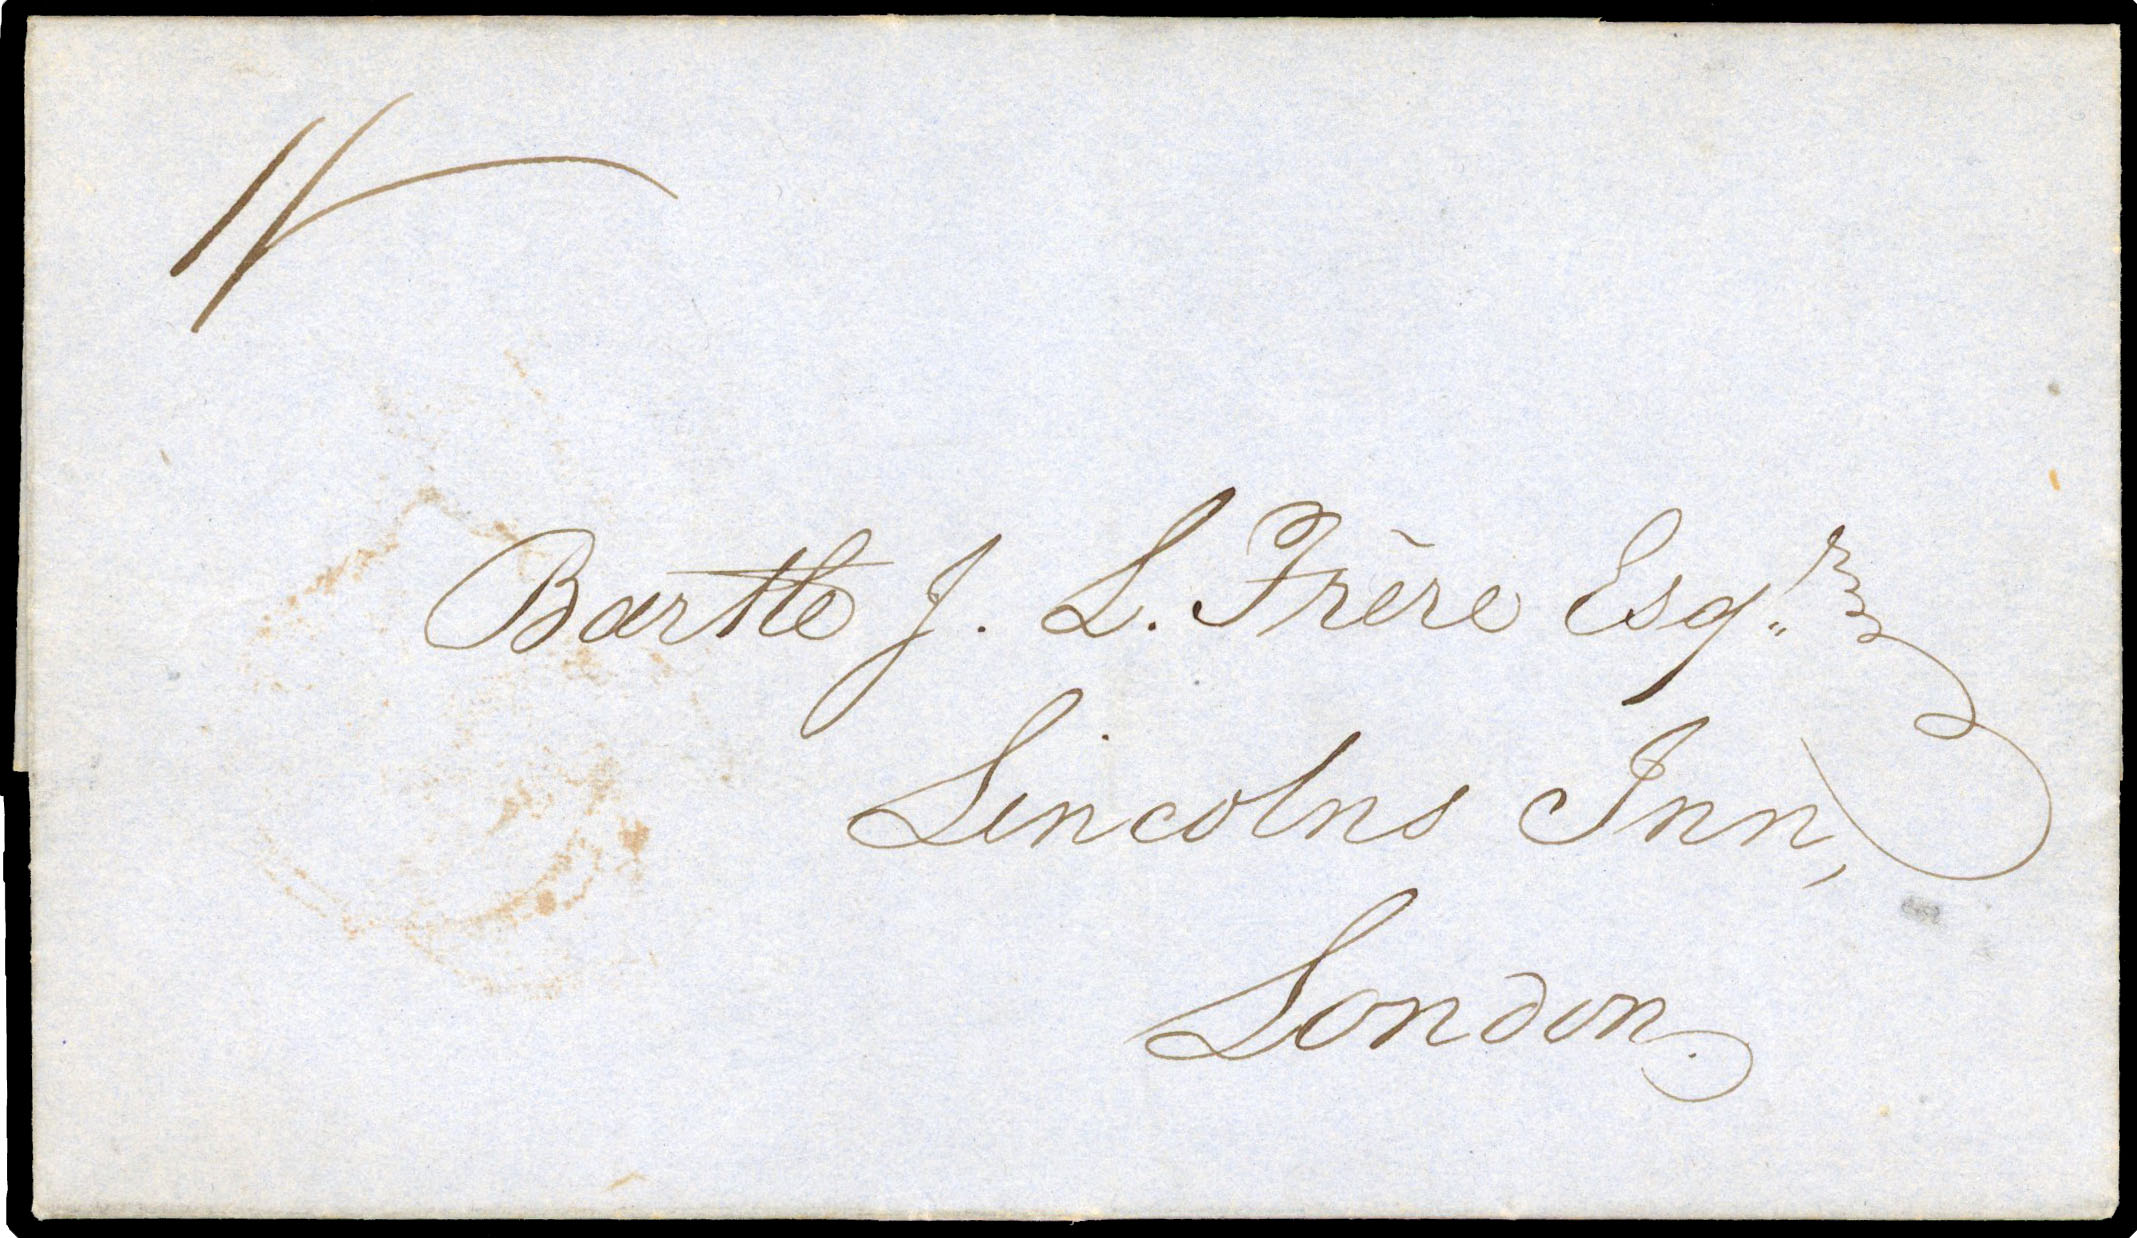 1/
Bartle J. L. Frère Esqr.
Lincolns Inn,
London.